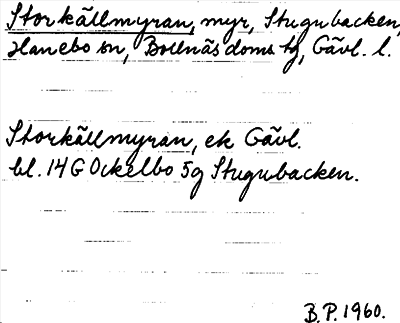 Storkällmyran, myr, Stugubacken,
Hanebo sn, Bollnäs doms tg, Gävl. l.
Storkällmyran, ek Gävl.
bl. 14 G Ockelbo 5g Stugubacken.
B.P. 1960.